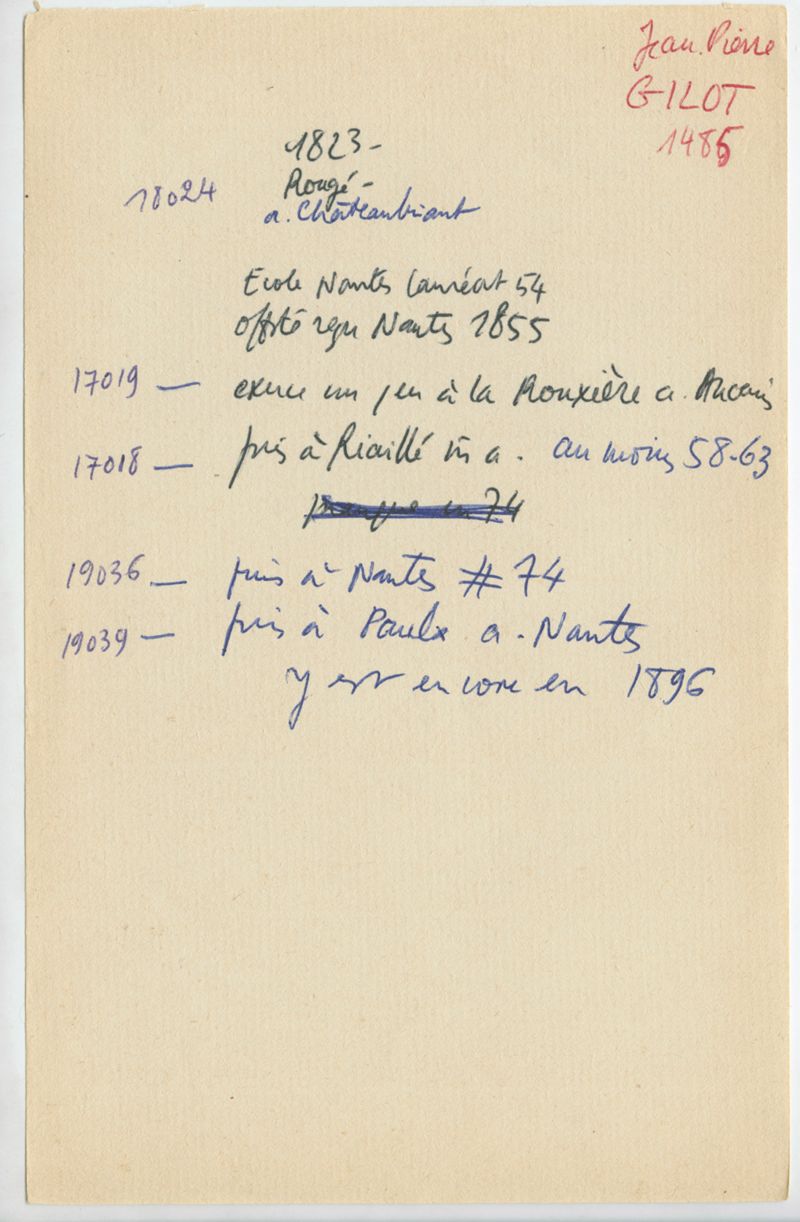 Jean-Pierre
GILOT
1485
1823-
Rougé-
18024
a. Châteaubriant
Ecole Nantes lauréat 54
offité reçu Nantes 1855
17019 — exerce un peu à la Rouxière a. Ancenis
17018 — puis à Riaillé a. au moins 58-63
manque en 74
19036 — puis à Nantes # 74
19039 — puis à Paulx a. Nantes
y est encore en 1896